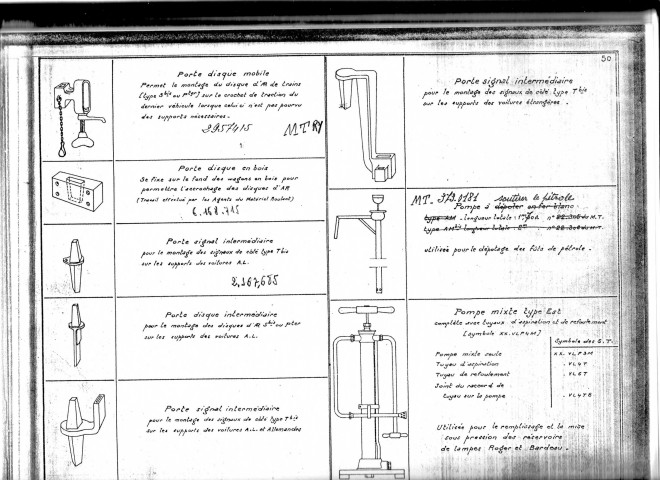 50.
Porte disque mobile
Permet le montage du disque d'AR de trains
sur le crochet de traction du
dernier véhicule lorsque celui ci n'est pas pourvu
des supports nécessaires.
2957415 MT RY
Porte disque en bois
Se fixe sur le fond des wagons en bois pour
permettre l'accrochage des disques d'AR
(Travail effectué par les Agents du Matériel Roulant)
6.168.715
Porte signal intermédiaire
pour le montage des signaux de côté type T bis
sur les supports des voitures A.L.
2,167,685
Porte disque intermédiaire
pour le montage des disques d'AR 5 bis ou pter
sur les supports des voitures A.L.
Porte signal intermédiaire
pour le montage des signaux de côté type T bis
sur les supports des voitures A.L. et Allemandes
Porte signal intermédiaire
pour le montage des signaux de côté type T bis
sur les supports des voitures étrangères.
MT. 379.0181 soutirer le pétrole
Pompe à dépoter en fer blanc
type AM - longueur totale : n° 22.305 du M.T.
longueur totale : 2m
utilisée pour le dépotage des fûts de pétrole.
Pompe mixte type Est
complète avec tuyaux d'aspiration et de refoulement
[symbole XX.VLP4M]
Symbole des S.T.
Pompe mixte seule XX.VLP3M
Tuyau d'aspiration .VL4T
Tuyau de refoulement .VL5T
Joint du raccord de
tuyau sur la pompe .VL4TB
Utilisée pour le remplissage et la mise
sous pression des réservoirs
de lampes Roger et Bardeau.